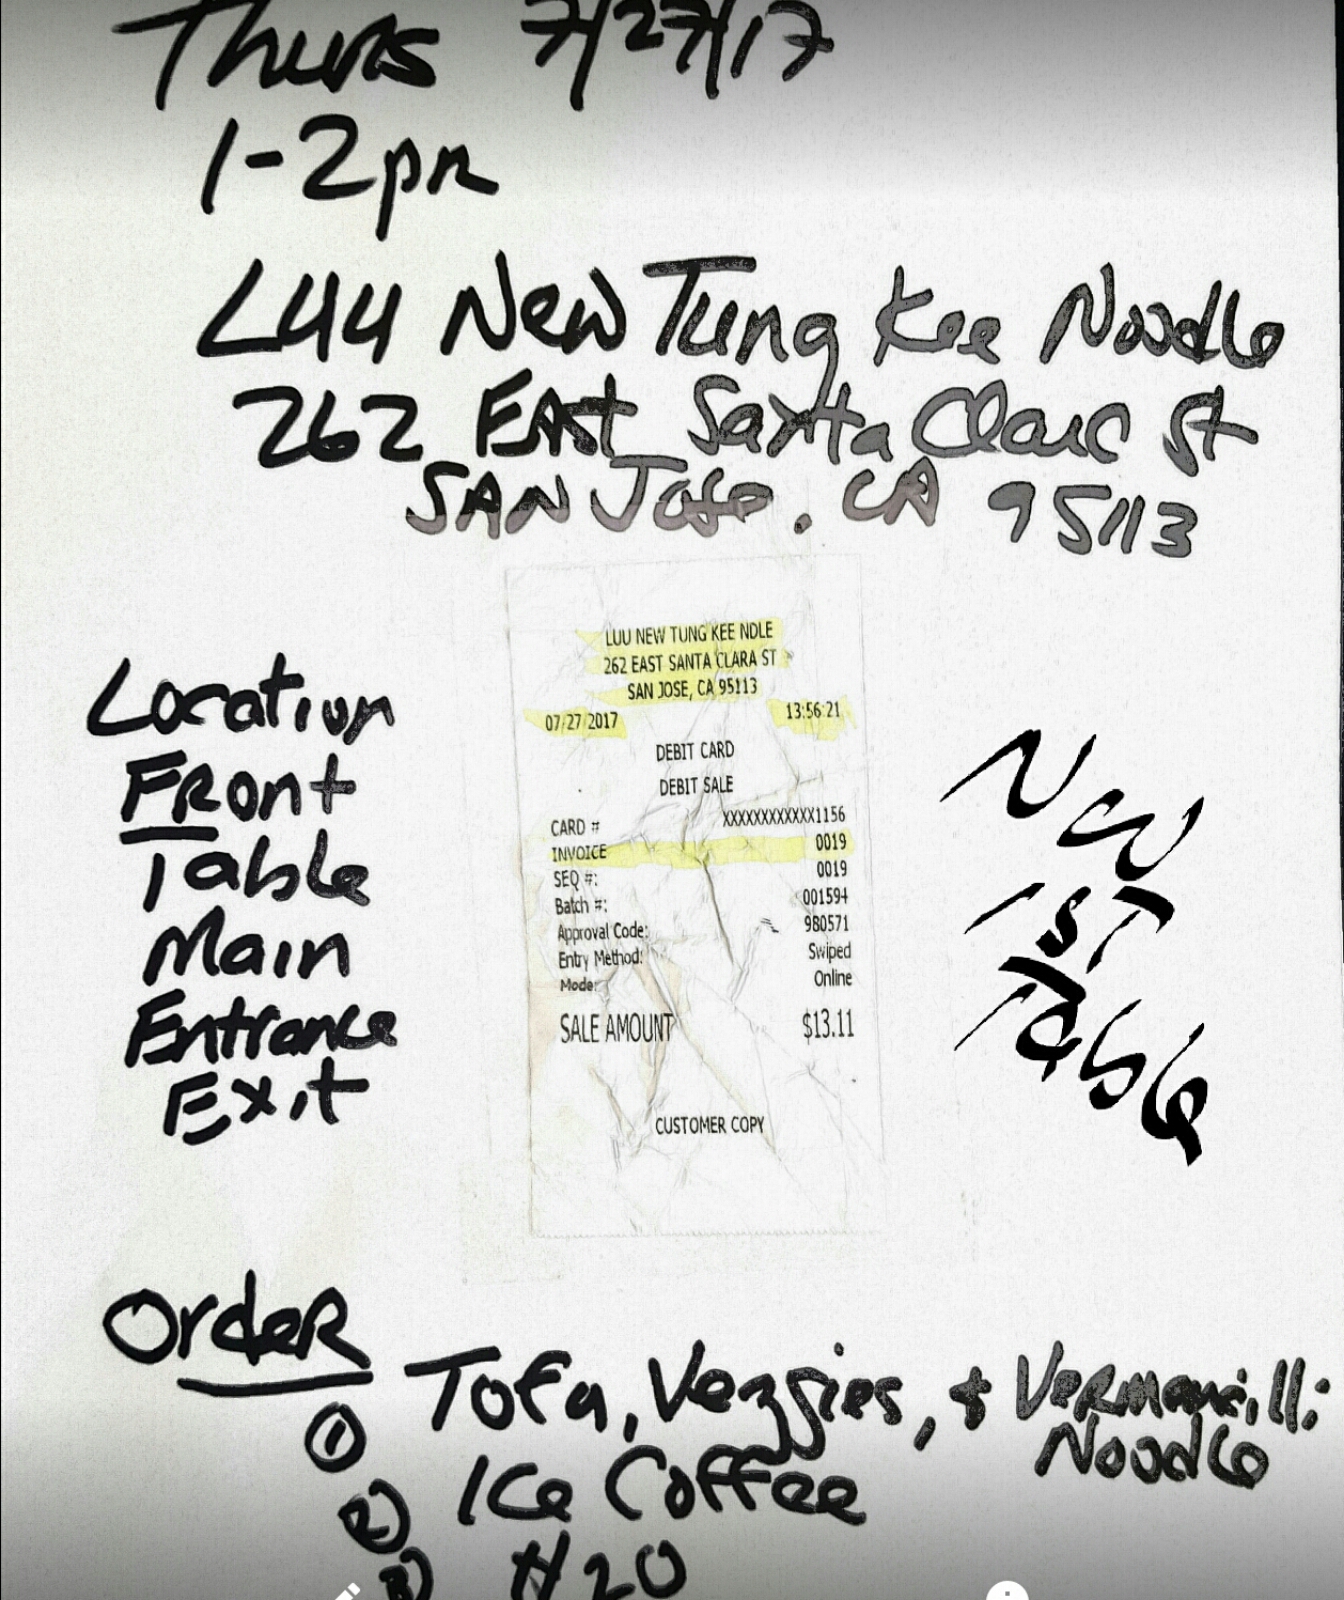 Thurs 7/27/17
1-2pm
Luu New Tung Kee Noodle
262 EAst Santa Clara St
SAN Jose, CA 95113
LUU NEW TUNG KEE NDLE
262 EAST SANTA CLARA ST
SAN JOSE, CA 95113
07/27 2017 13:56:21
DEBIT CARD
DEBIT SALE
CARD # XXXXXXXXXXXX1156
INVOICE 0019
SEQ #: 0019
Batch #: 001594
Approval Code: 980571
Entry Method: Swiped
Mode: Online
SALE AMOUNT $13.11
CUSTOMER COPY
Location
FRont
Table
Main
Entrance
Exit
NW
1ST
Table
OrdeR
① Tofu, Veggies, + Vermicilli
Noodle
② Ice Coffee
③ H20